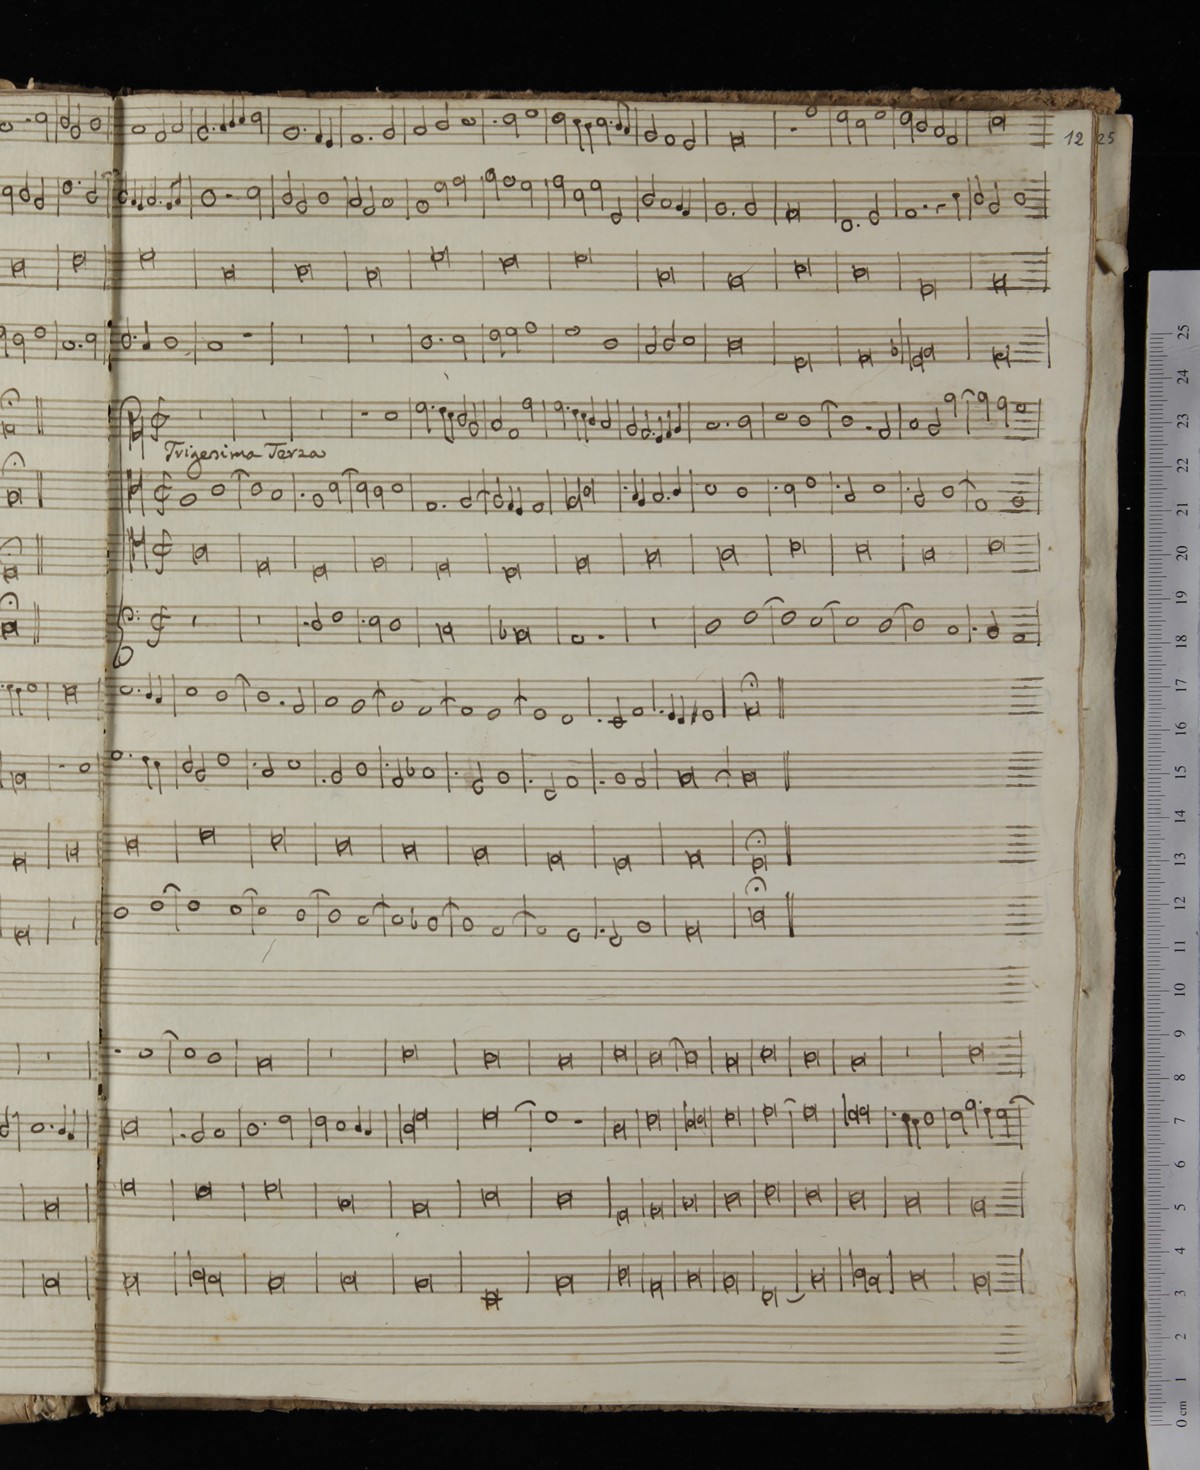 12 25
Trigesima Terza
25
24
23
22
21
20
19
18
17
16
15
14
13
12
11
10
9
8
7
6
5
4
3
2
1
0 cm